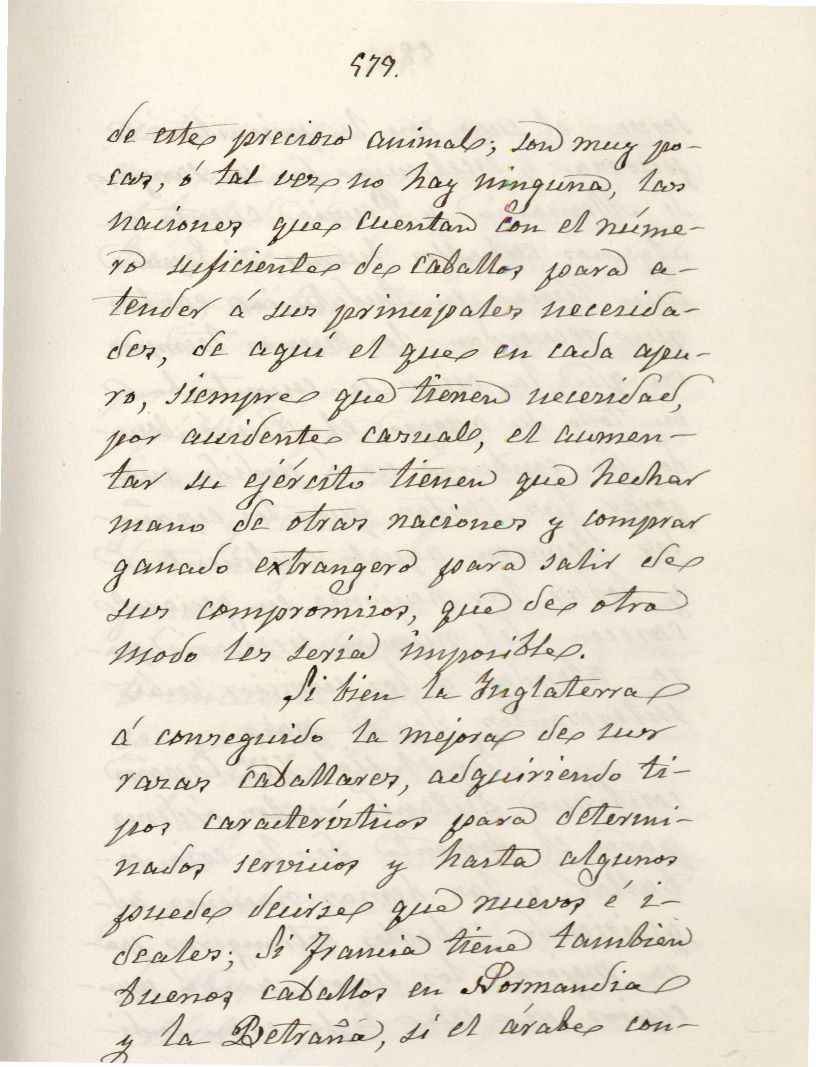 579.
de este precioso animal; son muy po-
cas, ó tal vez no hay ninguna, las
naciones que cuentan con el núme-
ro suficiente de caballos para a-
tender á sus principales necesida-
des, de aquí el que en cada apu-
ro, siempre que tienen necesidad,
por accidente casual, el aumen-
tar su ejército tienen que hechar
mano de otras naciones y comprar
ganado extrangero para salir de
sus compromisos, que de otra
modo les sería imposible.
Si bien la Inglaterra
á conseguido la mejora de sus
razas caballares, adquiriendo ti-
pos característicos para determi-
nados servicios y hasta algunos
puede decirse que nuevos é i-
deales; Si Francia tiene tambien
buenos caballos en Normandia
y la Betraña, si el árabe con-